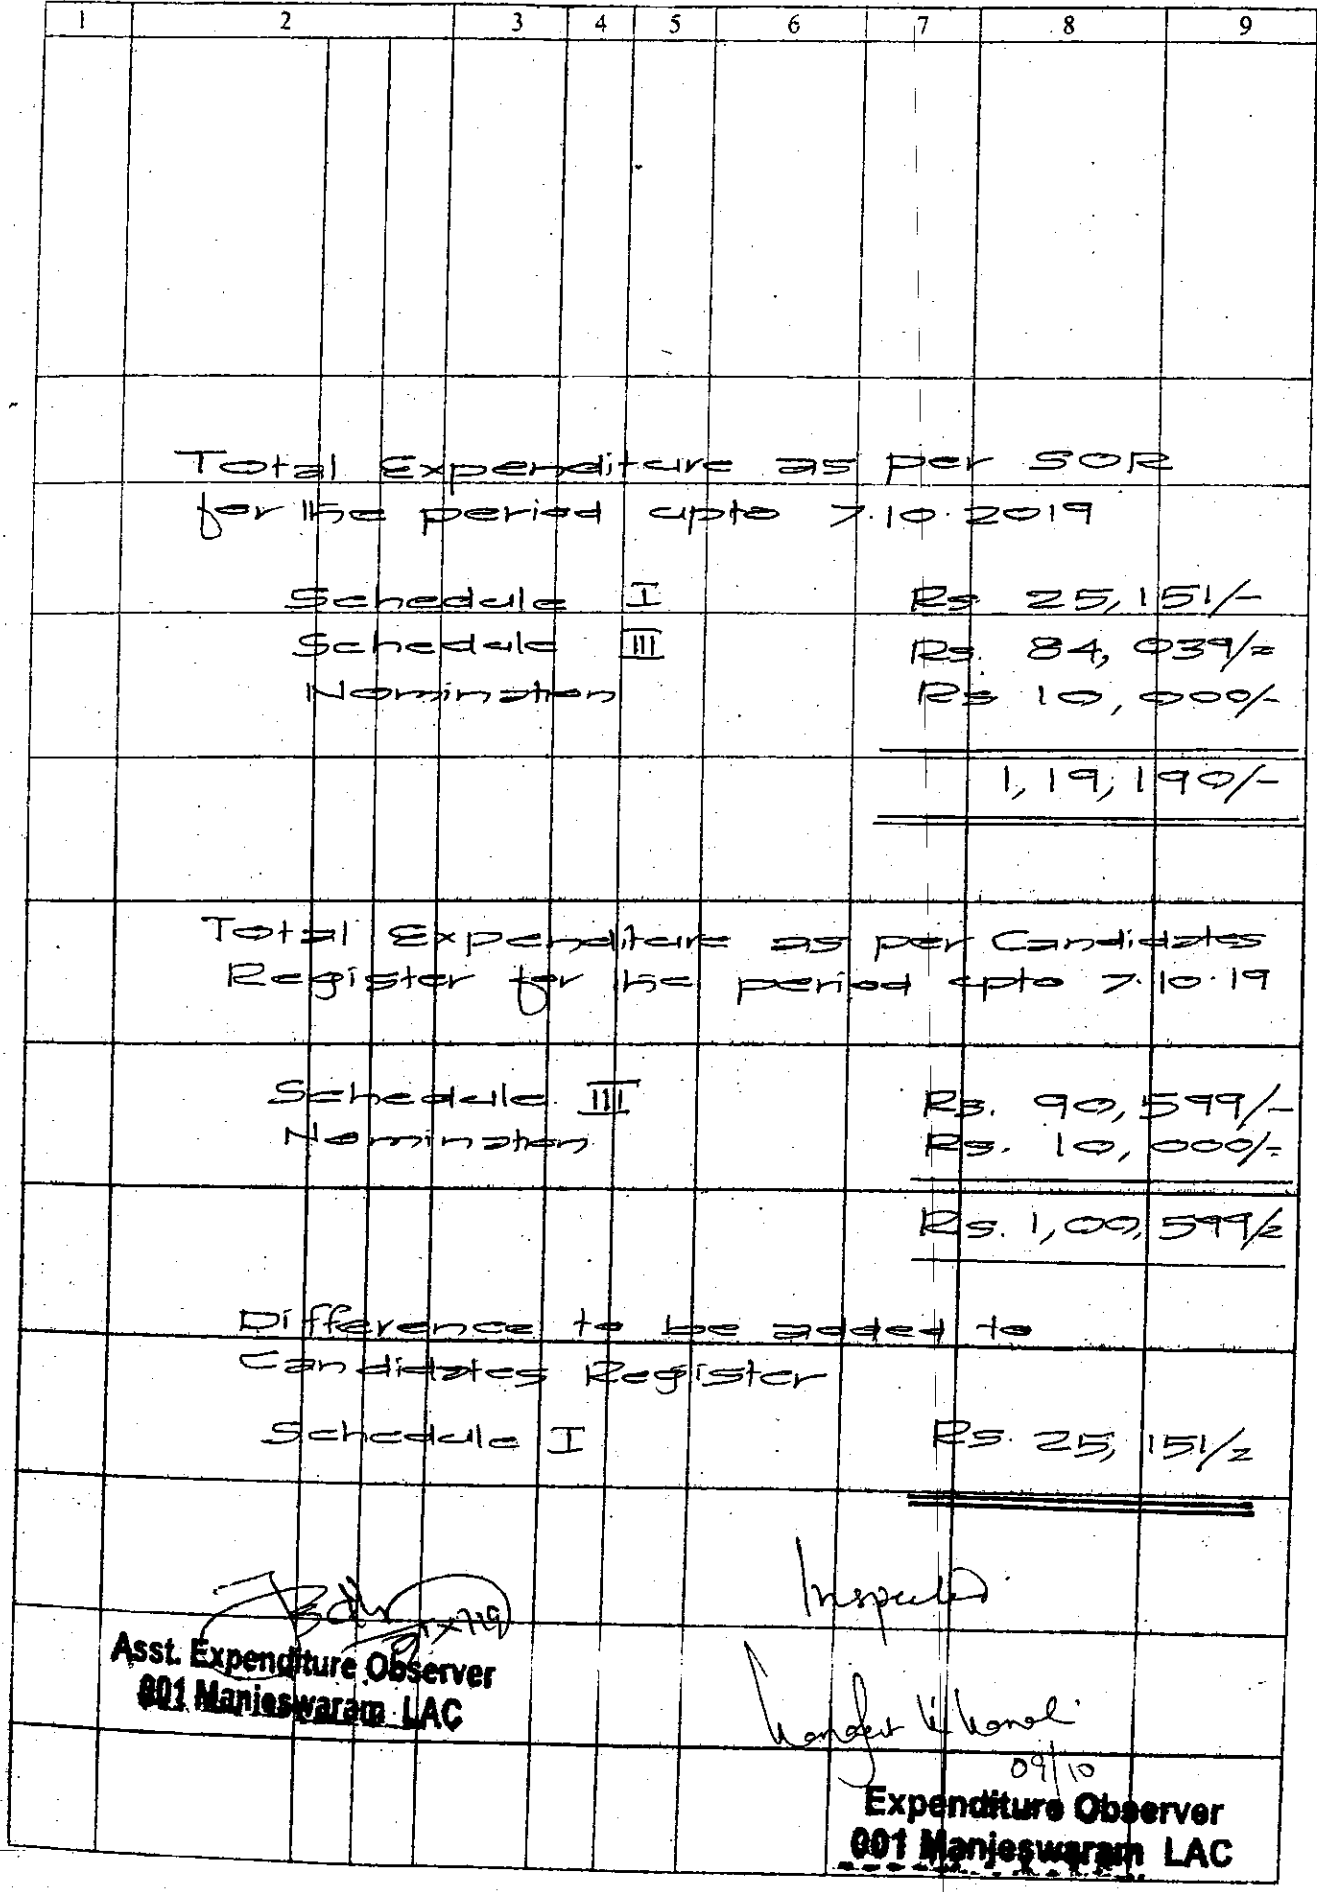 1 2 3 4 5 6 7 8 9
Total Expenditure as per SOR
for the period upto 7.10.2019
Schedule I Rs 25,151/-
Schedule III Rs. 84,039/=
Nomination Rs 10,000/-
1,19,190/-
Total Expenditure as per Candidates
Register for the period upto 7.10.19
Schedule III Rs. 90,599/-
Nomination Rs. 10,000/-
Rs. 1,00,599/=
Difference to be added to
Candidates Register
Schedule I Rs. 25,151/=
Inspected
Asst. Expenditure Observer
001 Manjeswaram LAC
09/10
Expenditure Observer
001 Manjeswaram LAC